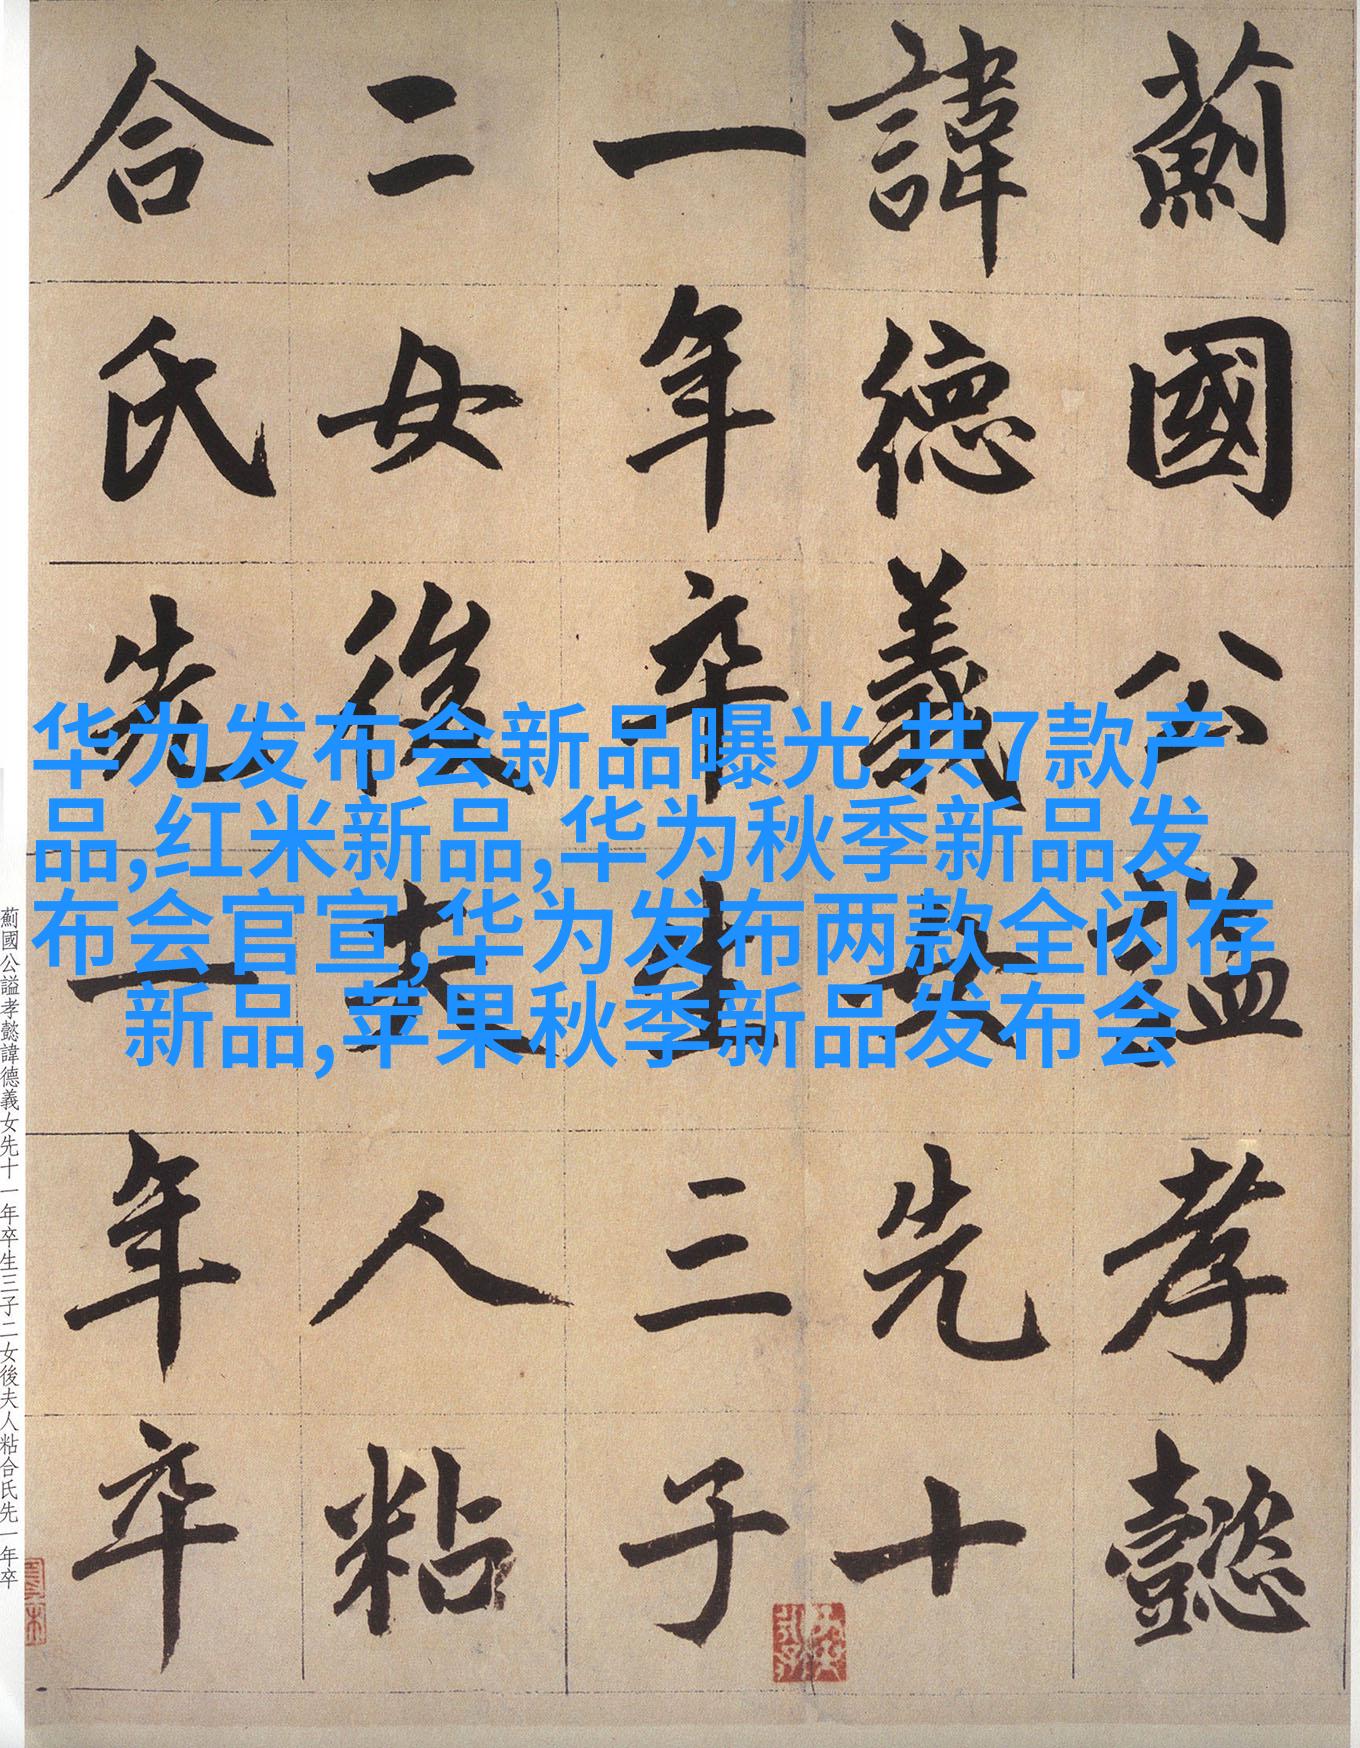 薊國公謚孝懿
諱德義女先十
一年卒生三子
二女後夫人粘
合氏先一年卒
华为发布会新品曝光 共7款产
品,红米新品,华为秋季新品发
布会官宣,华为发布两款全闪存
新品,苹果秋季新品发布会
薊國公謚孝懿諱德義女先十一年卒生三子二女後夫人粘合氏先一年卒